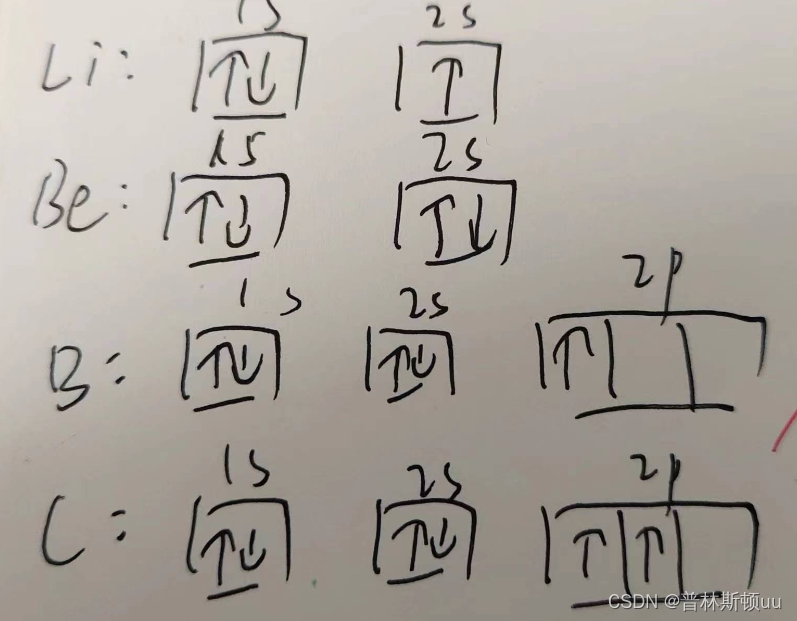 1s 2s
Li: ↑↓ ↑
1s 2s
Be: ↑↓ ↑↓
1s 2s 2p
B: ↑↓ ↑↓ ↑
1s 2s 2p
C: ↑↓ ↑↓ ↑ ↑
CSDN @普林斯顿uu